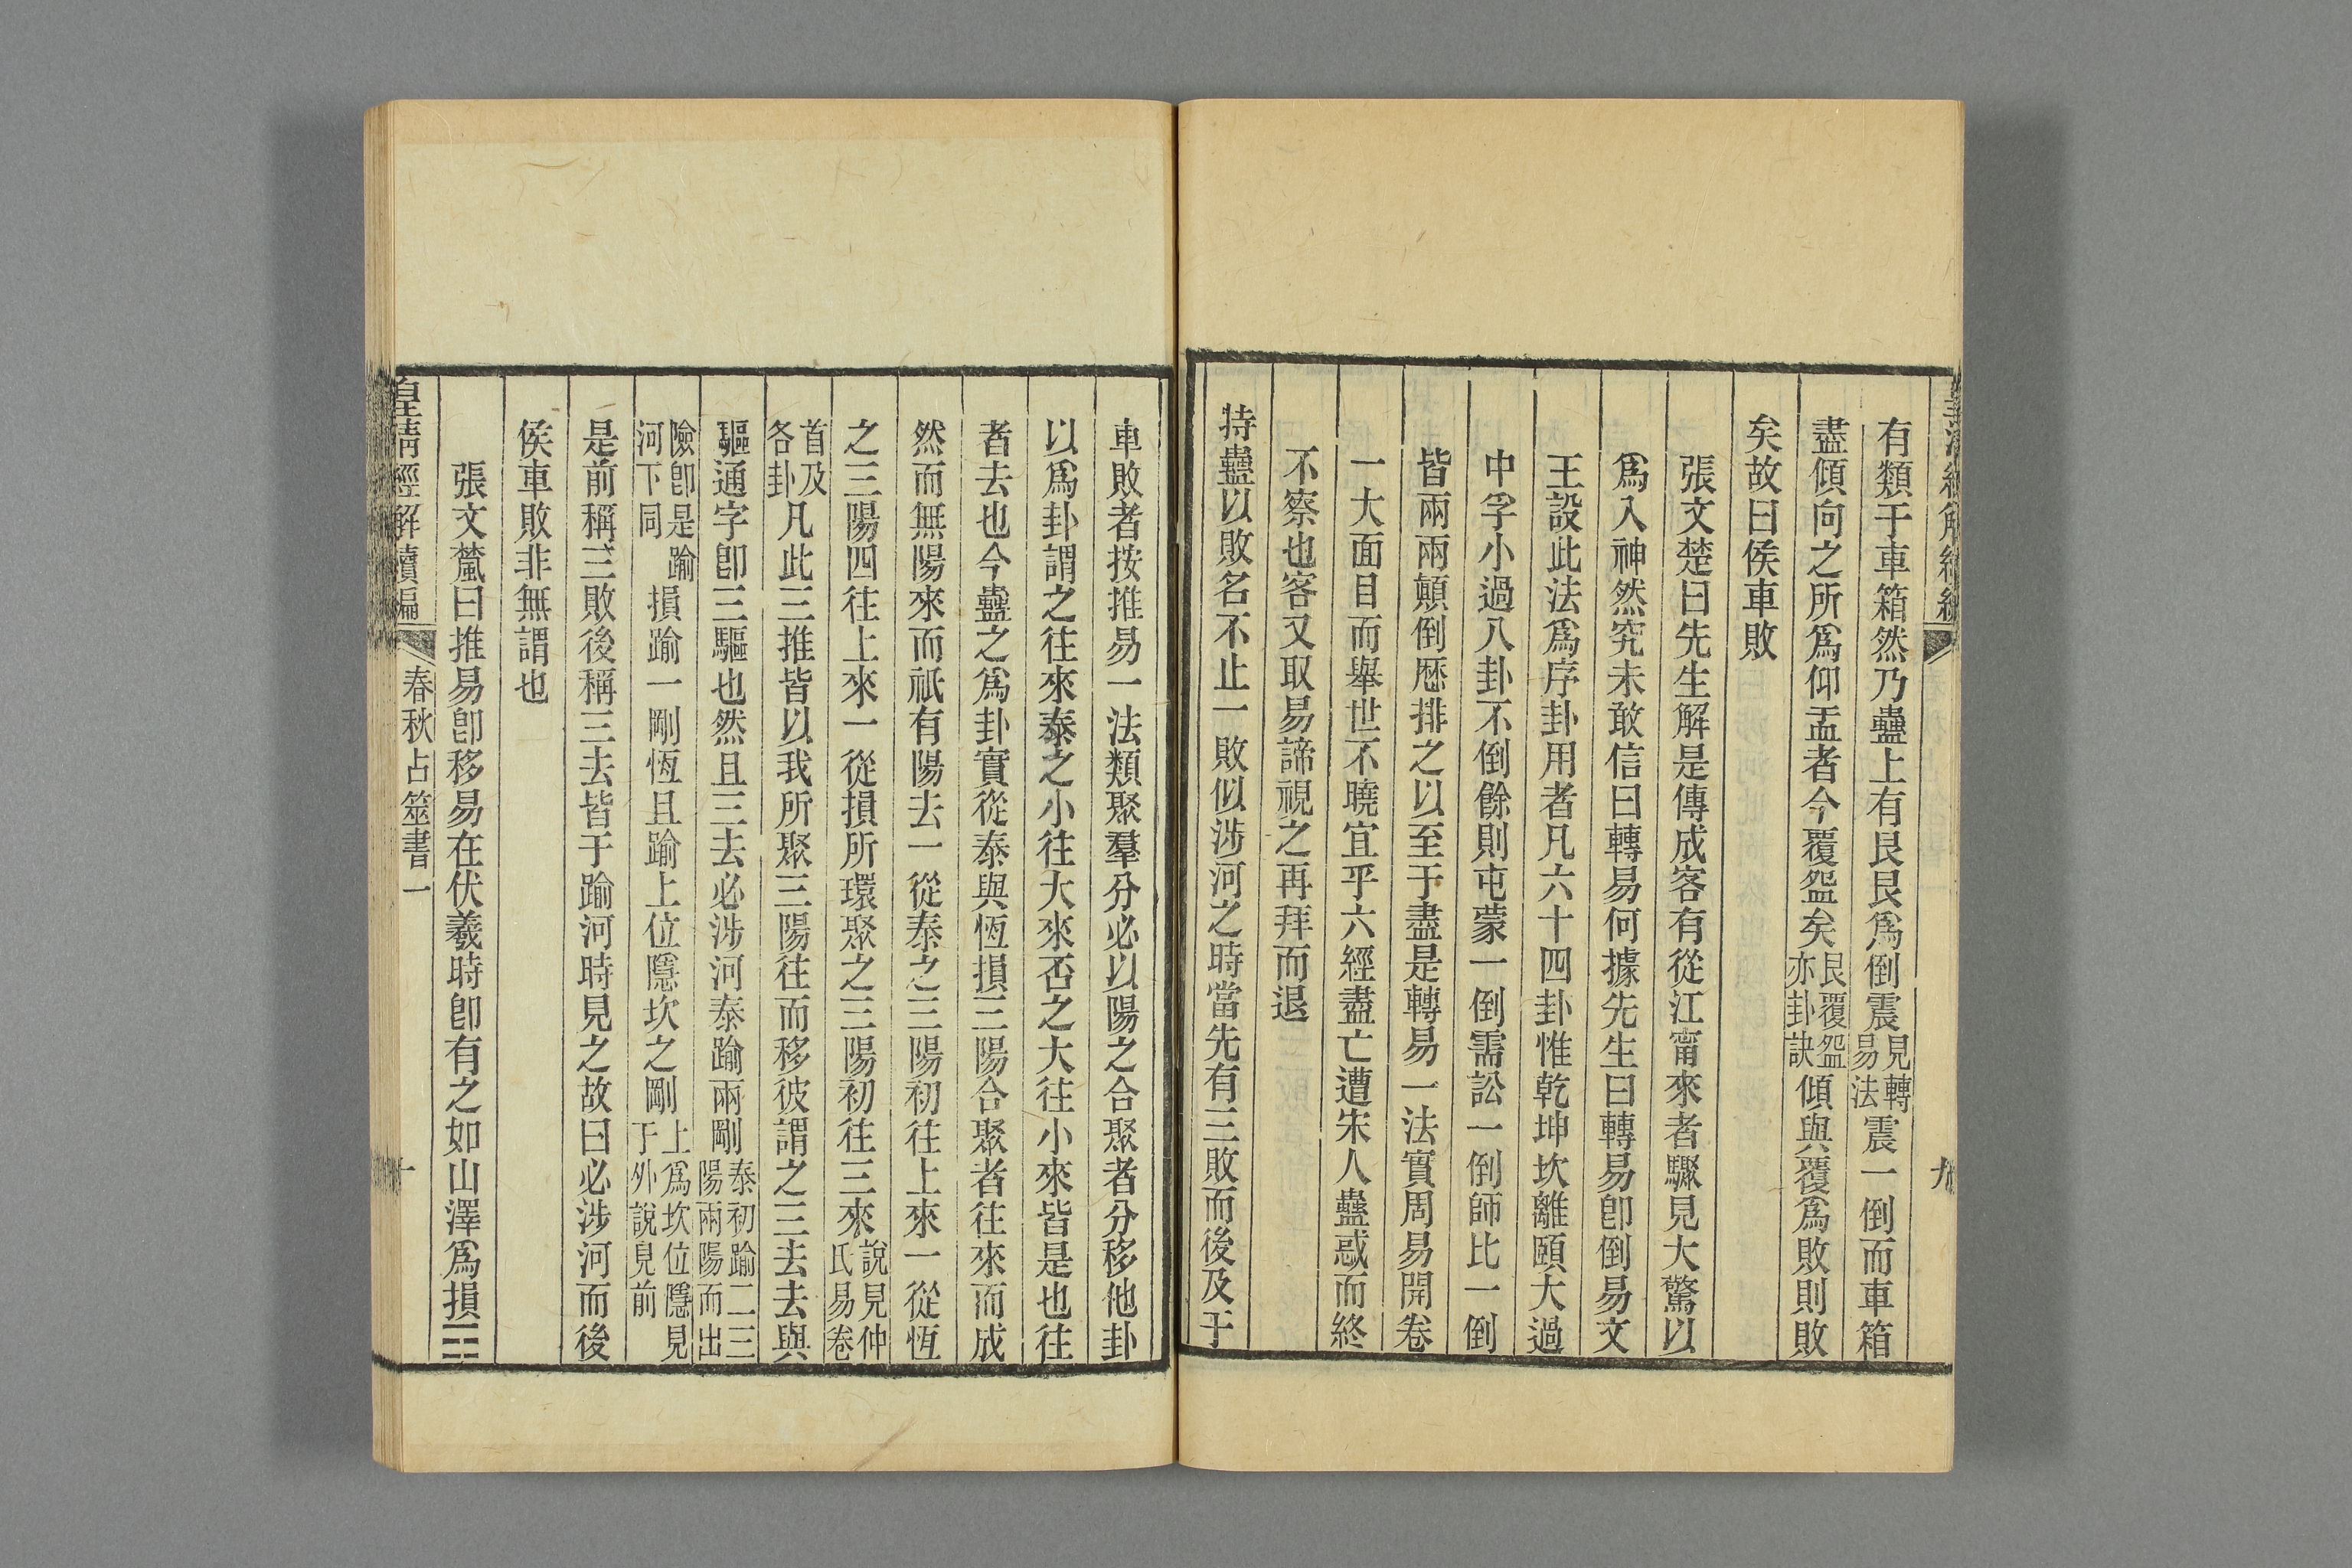 有類于車箱然乃蠱上有艮艮爲倒震見轉易法震一倒而車箱
盡傾向之所爲仰盂者今覆盌矣艮覆盌亦卦訣傾與覆爲敗則敗
矣故曰侯車敗
張文楚曰先生解是傳成客有從江甯來者驟見大驚以
爲入神然究未敢信曰轉易何據先生曰轉易卽倒易文
王設此法爲序卦用者凡六十四卦惟乾坤坎離頤大過
中孚小過八卦不倒餘則屯蒙一倒需訟一倒師比一倒
皆兩兩顛倒歷排之以至于盡是轉易一法實周易開卷
一大面目而舉世不曉宜乎六經盡亡遭宋人蠱惑而終
不察也客又取易諦視之再拜而退
持蠱以敗名不止一敗似涉河之時當先有三敗而後及于
九
車敗者按推易一法類聚羣分必以陽之合聚者分移他卦
以爲卦謂之往來泰之小往大來否之大往小來皆是也往
者去也今蠱之爲卦實從泰與恆損三陽合聚者往來而成
然而無陽來而祇有陽去一從泰之三陽初往上來一從恆
之三陽四往上來一從損所環聚之三陽初往三來說見仲氏易卷
首及各卦凡此三推皆以我所聚三陽往而移彼謂之三去去與
驅通字卽三驅也然且三去必涉河泰踰兩剛泰初踰二三陽兩陽而出
險卽是河下同踰損踰一剛恆且踰上位隱坎之剛上爲坎位隱見于外說見前
是前稱三敗後稱三去皆于踰河時見之故曰必涉河而後
侯車敗非無謂也
張文檒曰推易卽移易在伏羲時卽有之如山澤爲損䷨
皇清經解續編
春秋占筮書一
十